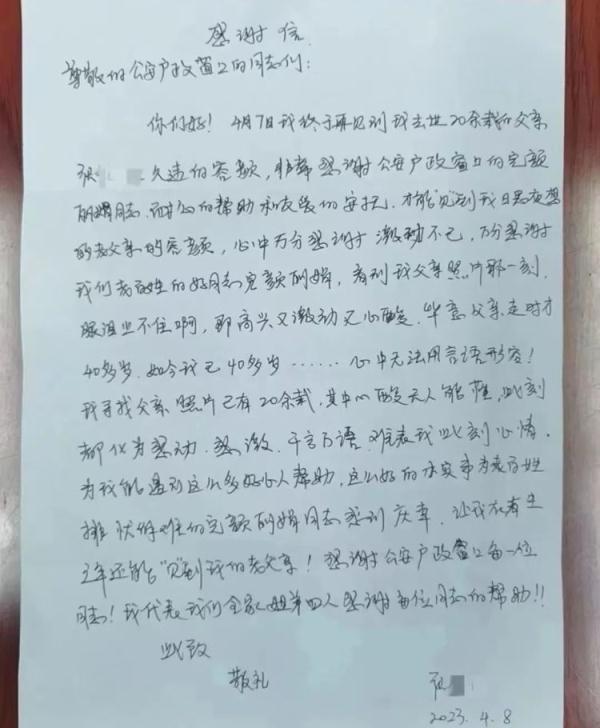 感谢信
尊敬的公安户政窗口的同志们:
你们好! 4月7日我终于再见到我去世20余载的父亲
张 久违的容颜, 非常感谢公安户政窗口的完颜
丽娟同志, 耐心的帮助和 的安抚, 才能"见"到我日思夜想
的老父亲的容颜, 心中万分感谢 激动不已, 万分感谢
我们老百姓的好同志完颜丽娟, 看到我父亲照片那一刻,
眼泪止不住啊, 那高兴又激动又心酸, 毕竟父亲走时才
40多岁, 如今我已40多岁…… 心中无法用言语形容!
我寻找父亲照片已有20余载, 其中心酸无人能懂, 此刻
都化为感动、感激、千言万语, 难表我此刻心情,
为我能遇到这么多好心人帮助, 这么好的 实事为老百姓
排忧解难的完颜丽娟同志感到庆幸, 让我在有生
之年还能"见"到我的老父亲! 感谢公安户政窗口每一位
同志! 我代表我们全家姐弟四人感谢每位同志的帮助!!
此致
敬礼
张
2023.4.8